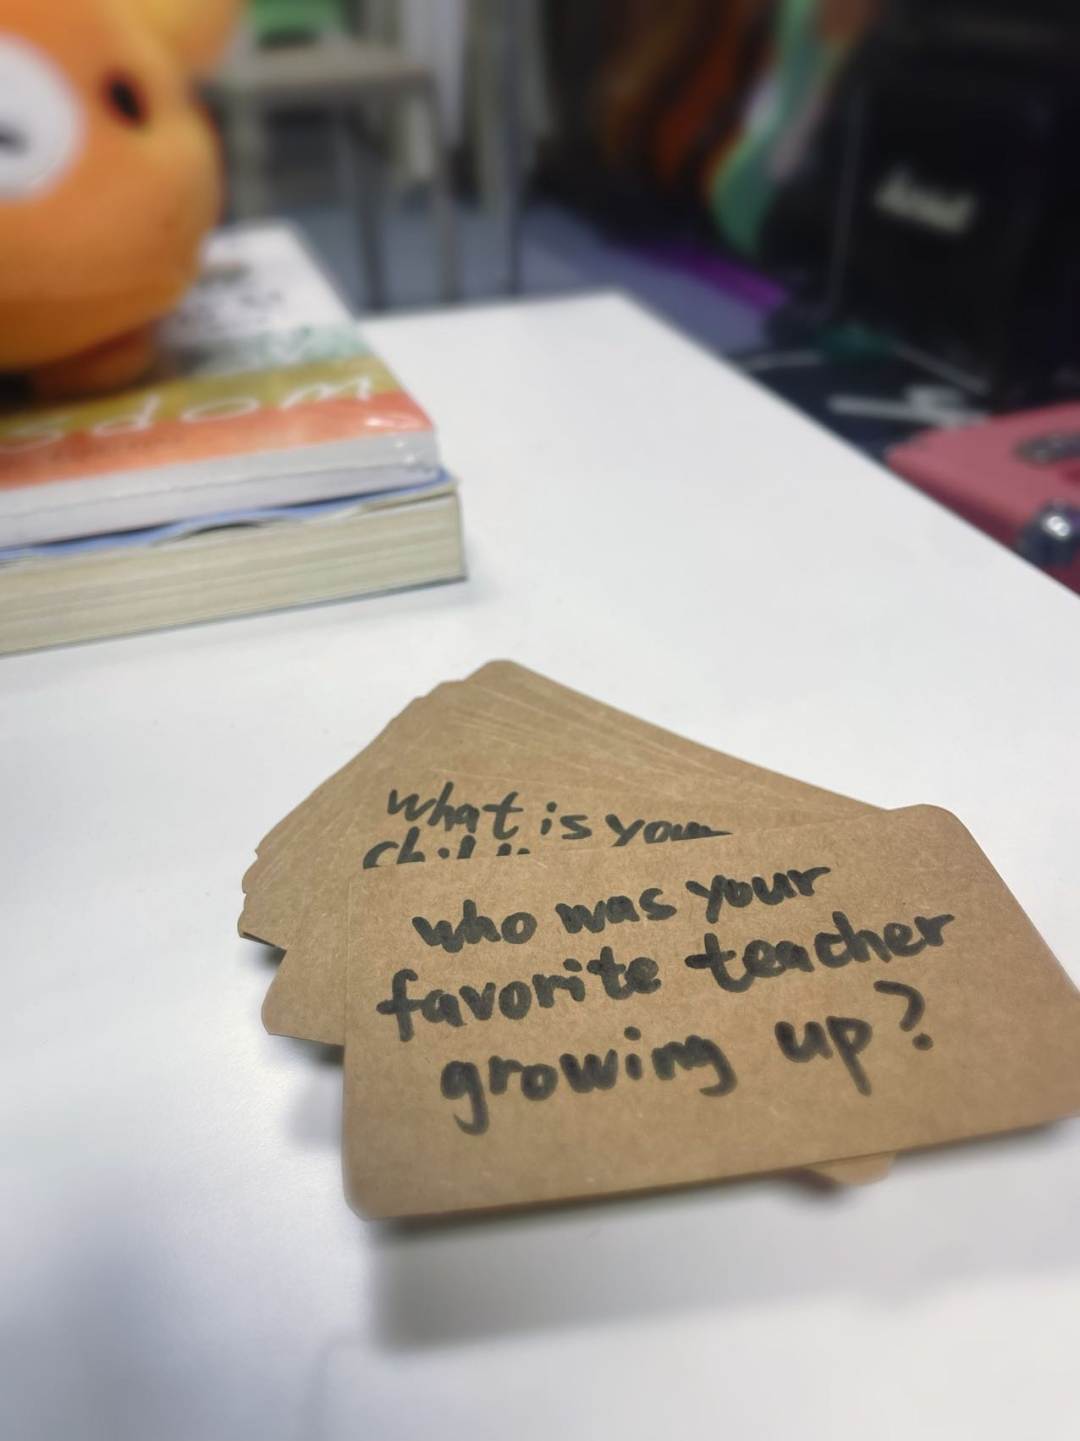 What is your
who was your
favorite teacher
growing up?